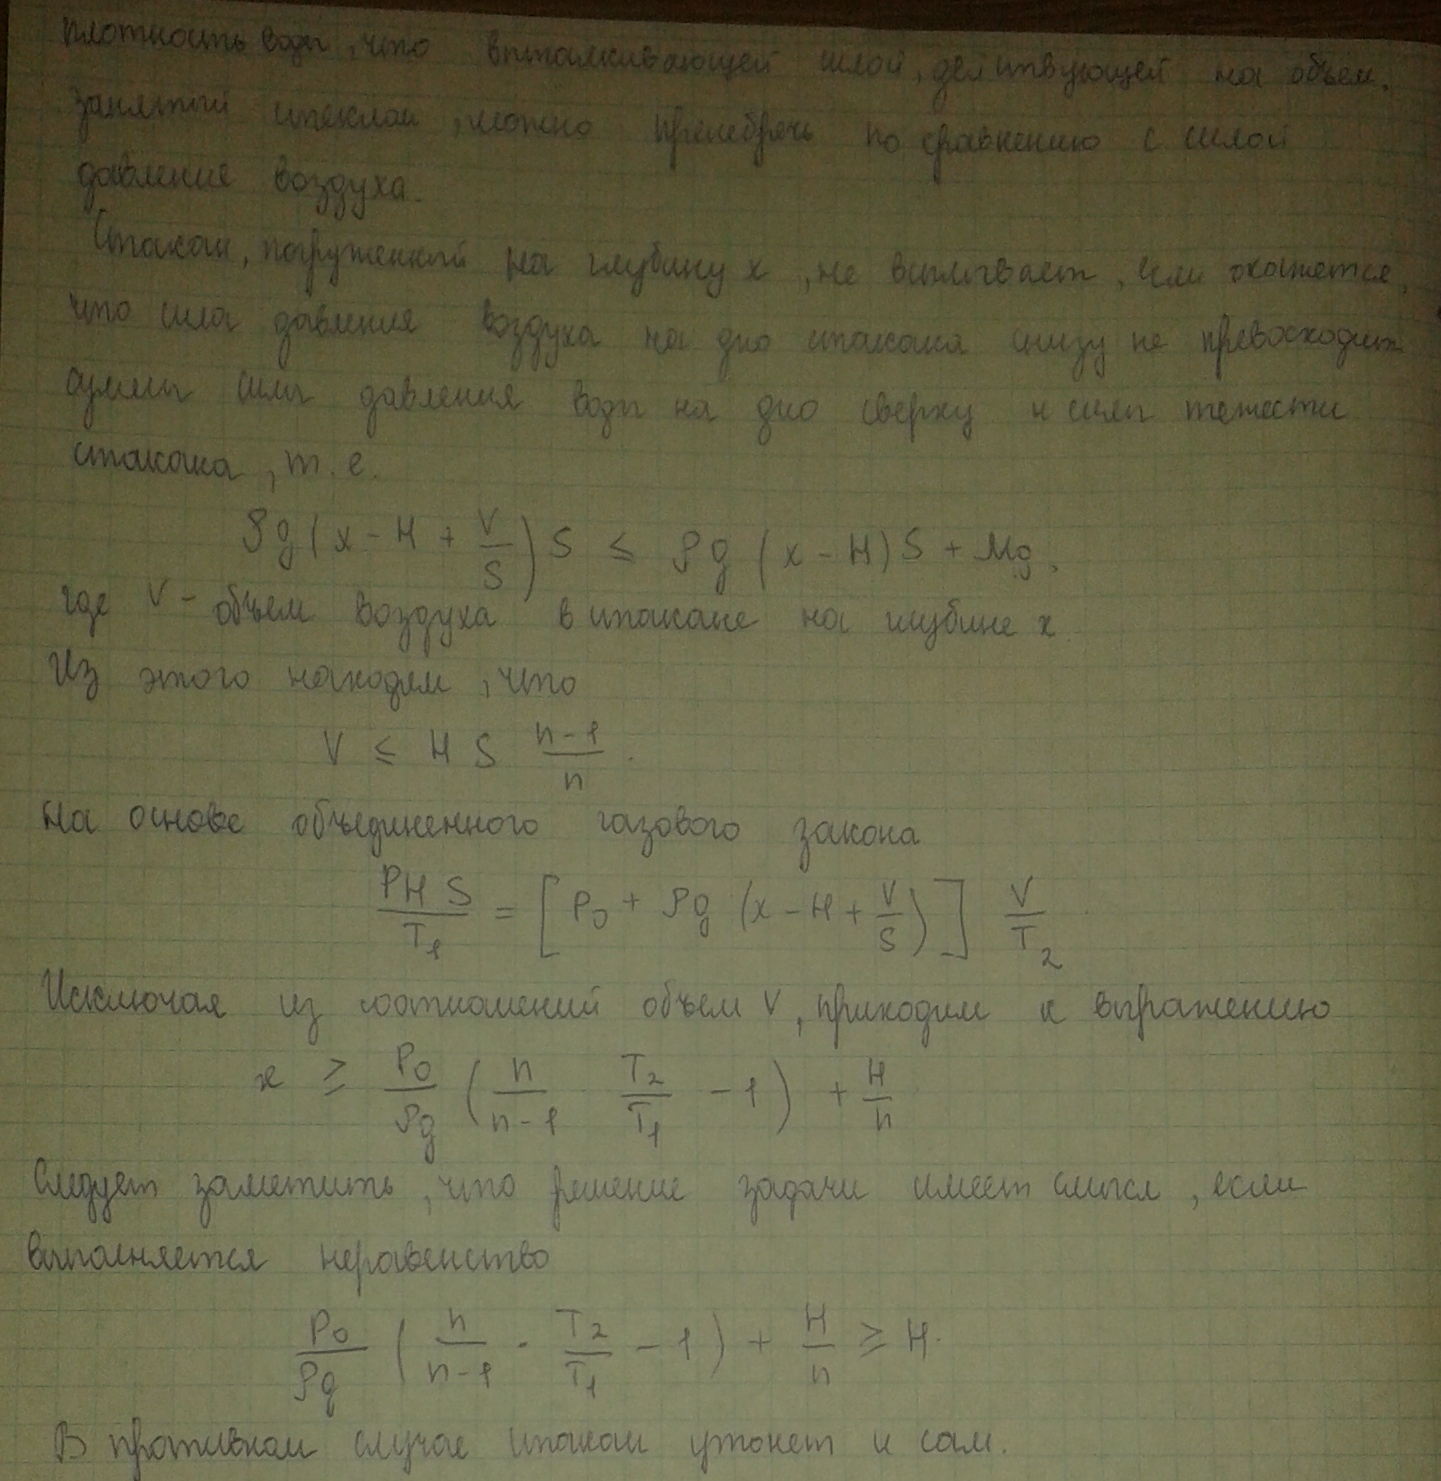 плотность воды, что выталкивающей силой, действующей на объем,
занятый стеклом, можно пренебречь по сравнению с силой
давление воздуха.
Стакан, погруженный на глубину x, не всплывает, если окажется,
что сила давления воздуха на дно стакана снизу не превосходит
суммы силы давления воды на дно сверху и силы тяжести
стакана, т.е.
ρg(x - H + V/S)S ≤ ρg(x - H)S + Mg,
где V - объем воздуха в стакане на глубине x.
Из этого находим, что
V ≤ H S (n-1)/n.
На основе объединенного газового закона
PHS/T₁ = [P₀ + ρg(x - H + V/S)] V/T₂
Исключая из соотношений объем V, приходим к выражению
x ≥ P₀/ρg (n/(n-1) T₂/T₁ - 1) + H/n
Следует заметить, что решение задачи имеет смысл, если
выполняется неравенство
P₀/ρg (n/(n-1) · T₂/T₁ - 1) + H/n ≥ H.
В противном случае стакан утонет и сам.